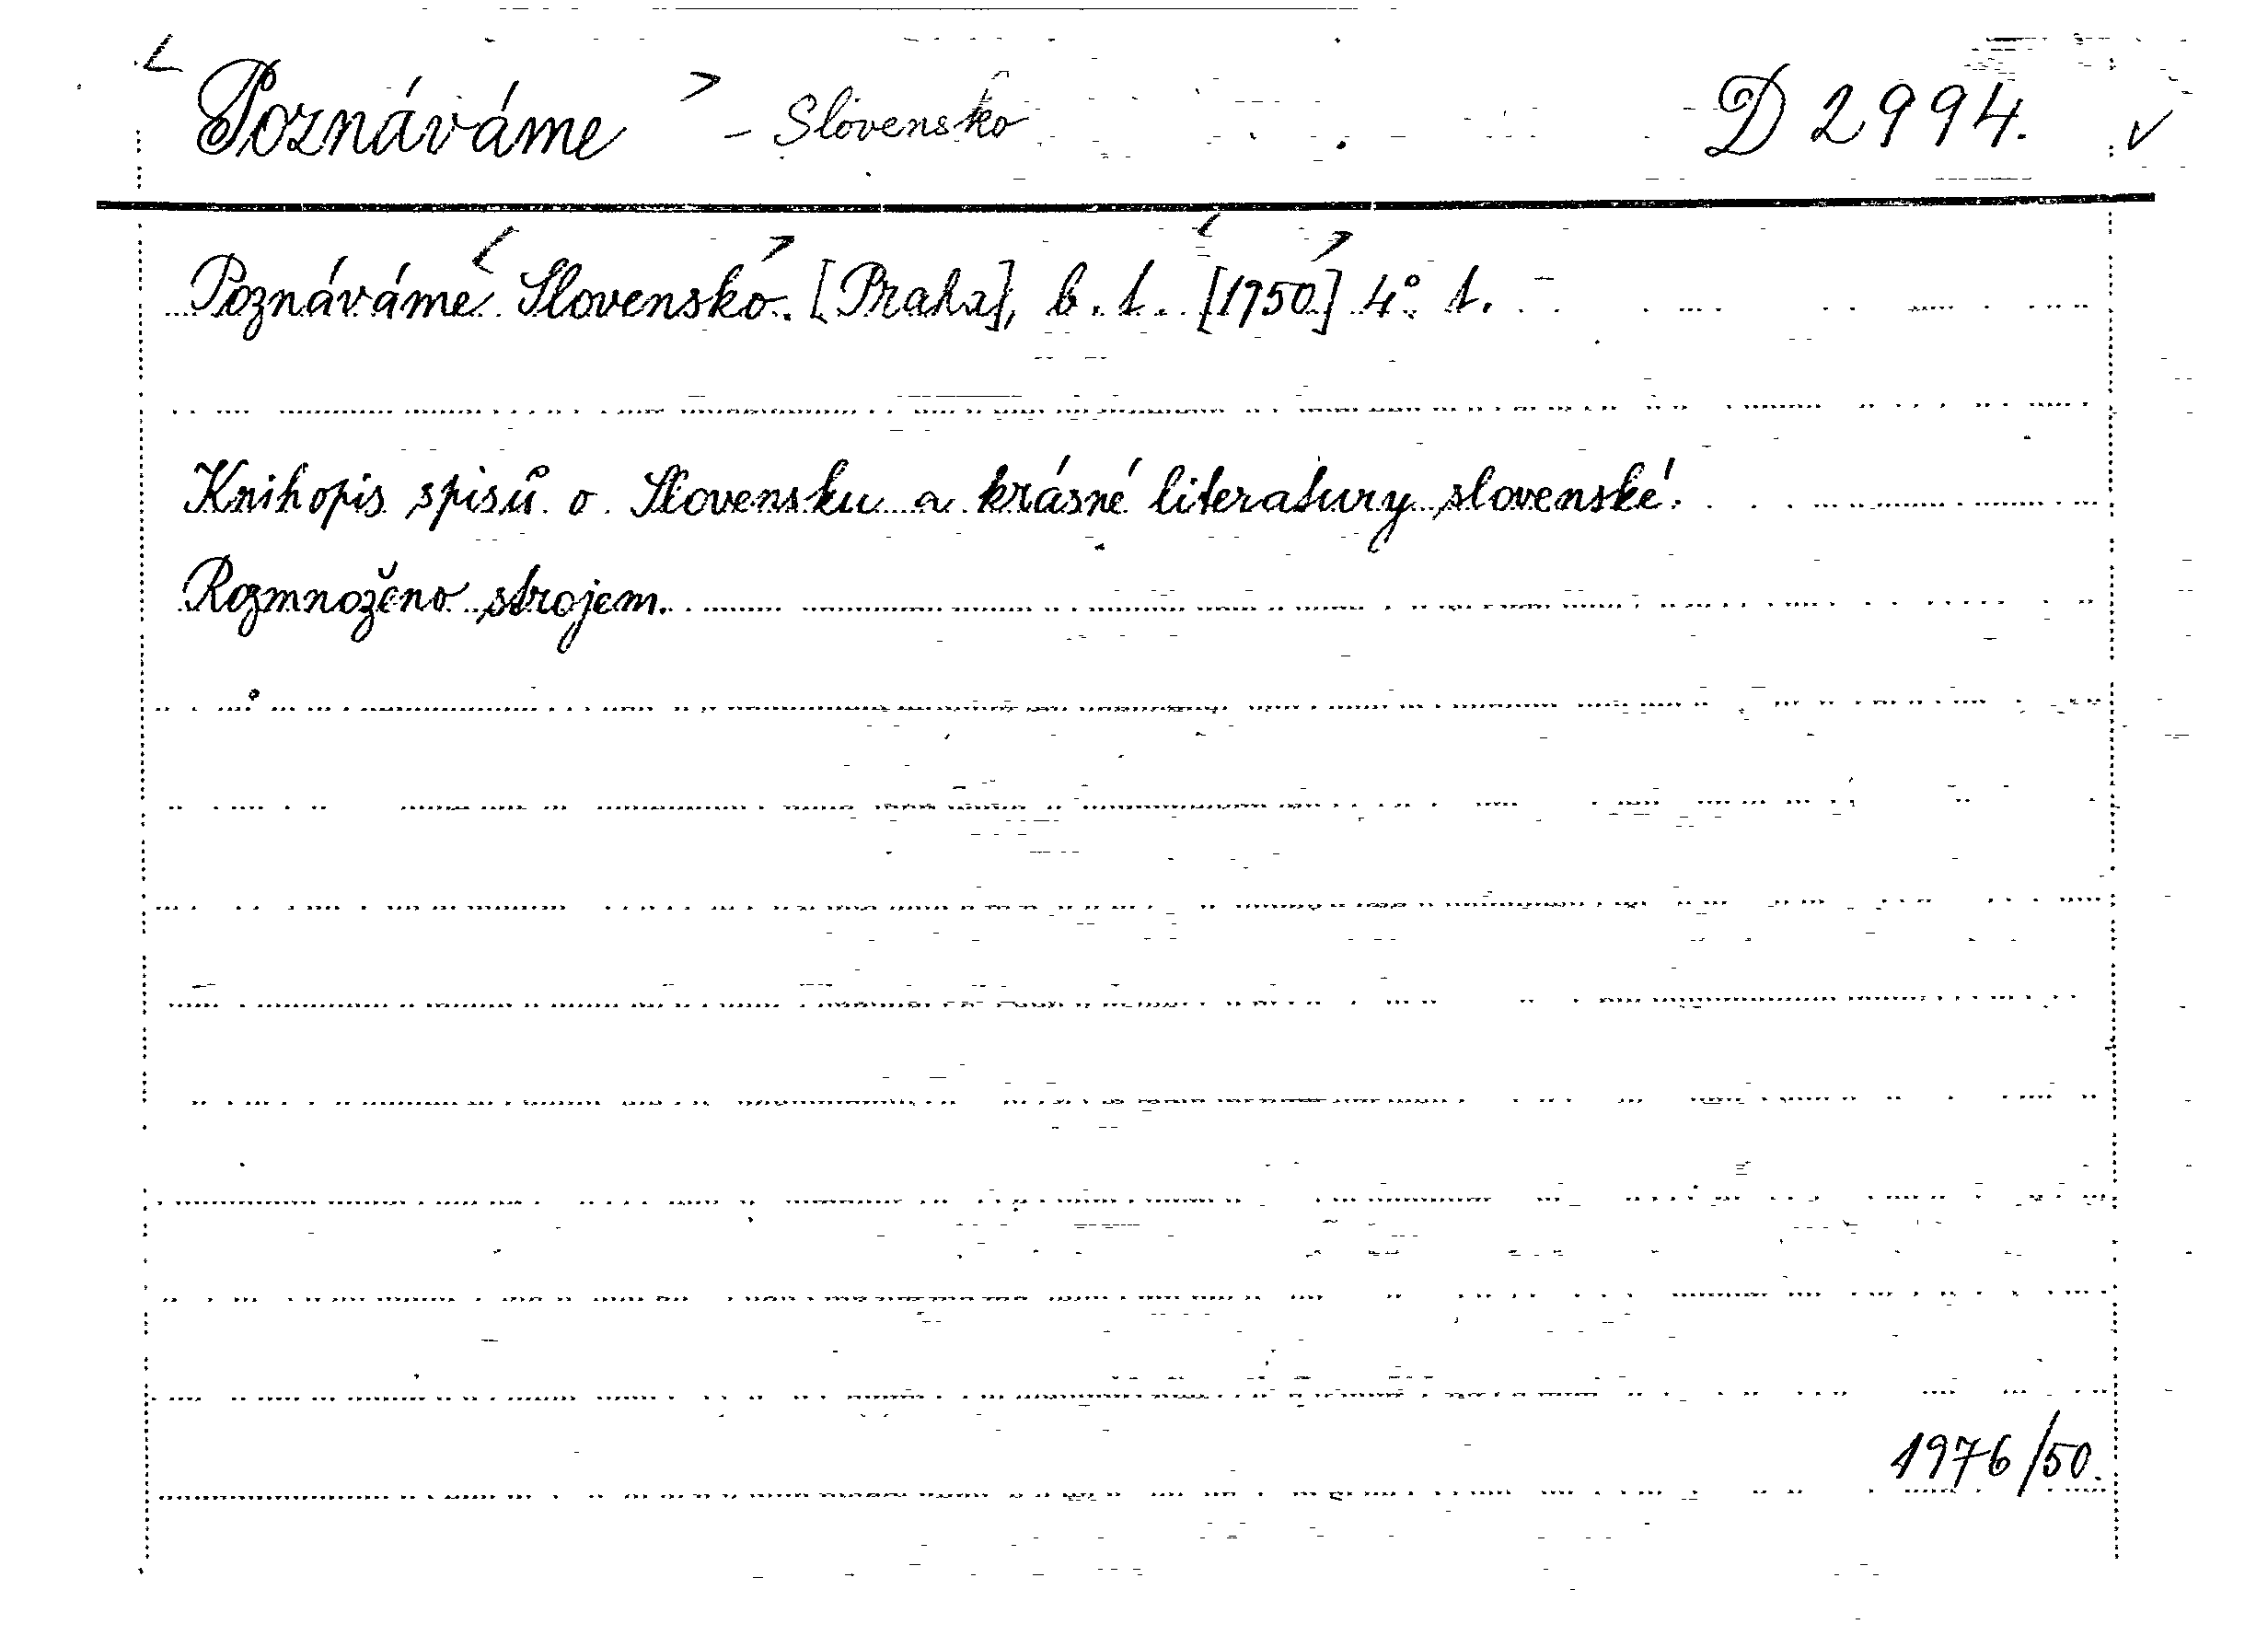 Poznáváme - Slovensko D 2994.
Poznáváme Slovensko. [Praha], b. t. [1950] 4° t.
Knihopis spisů o Slovensku a krásné literatury slovenské.
Rozmnoženo strojem.
1976/50.